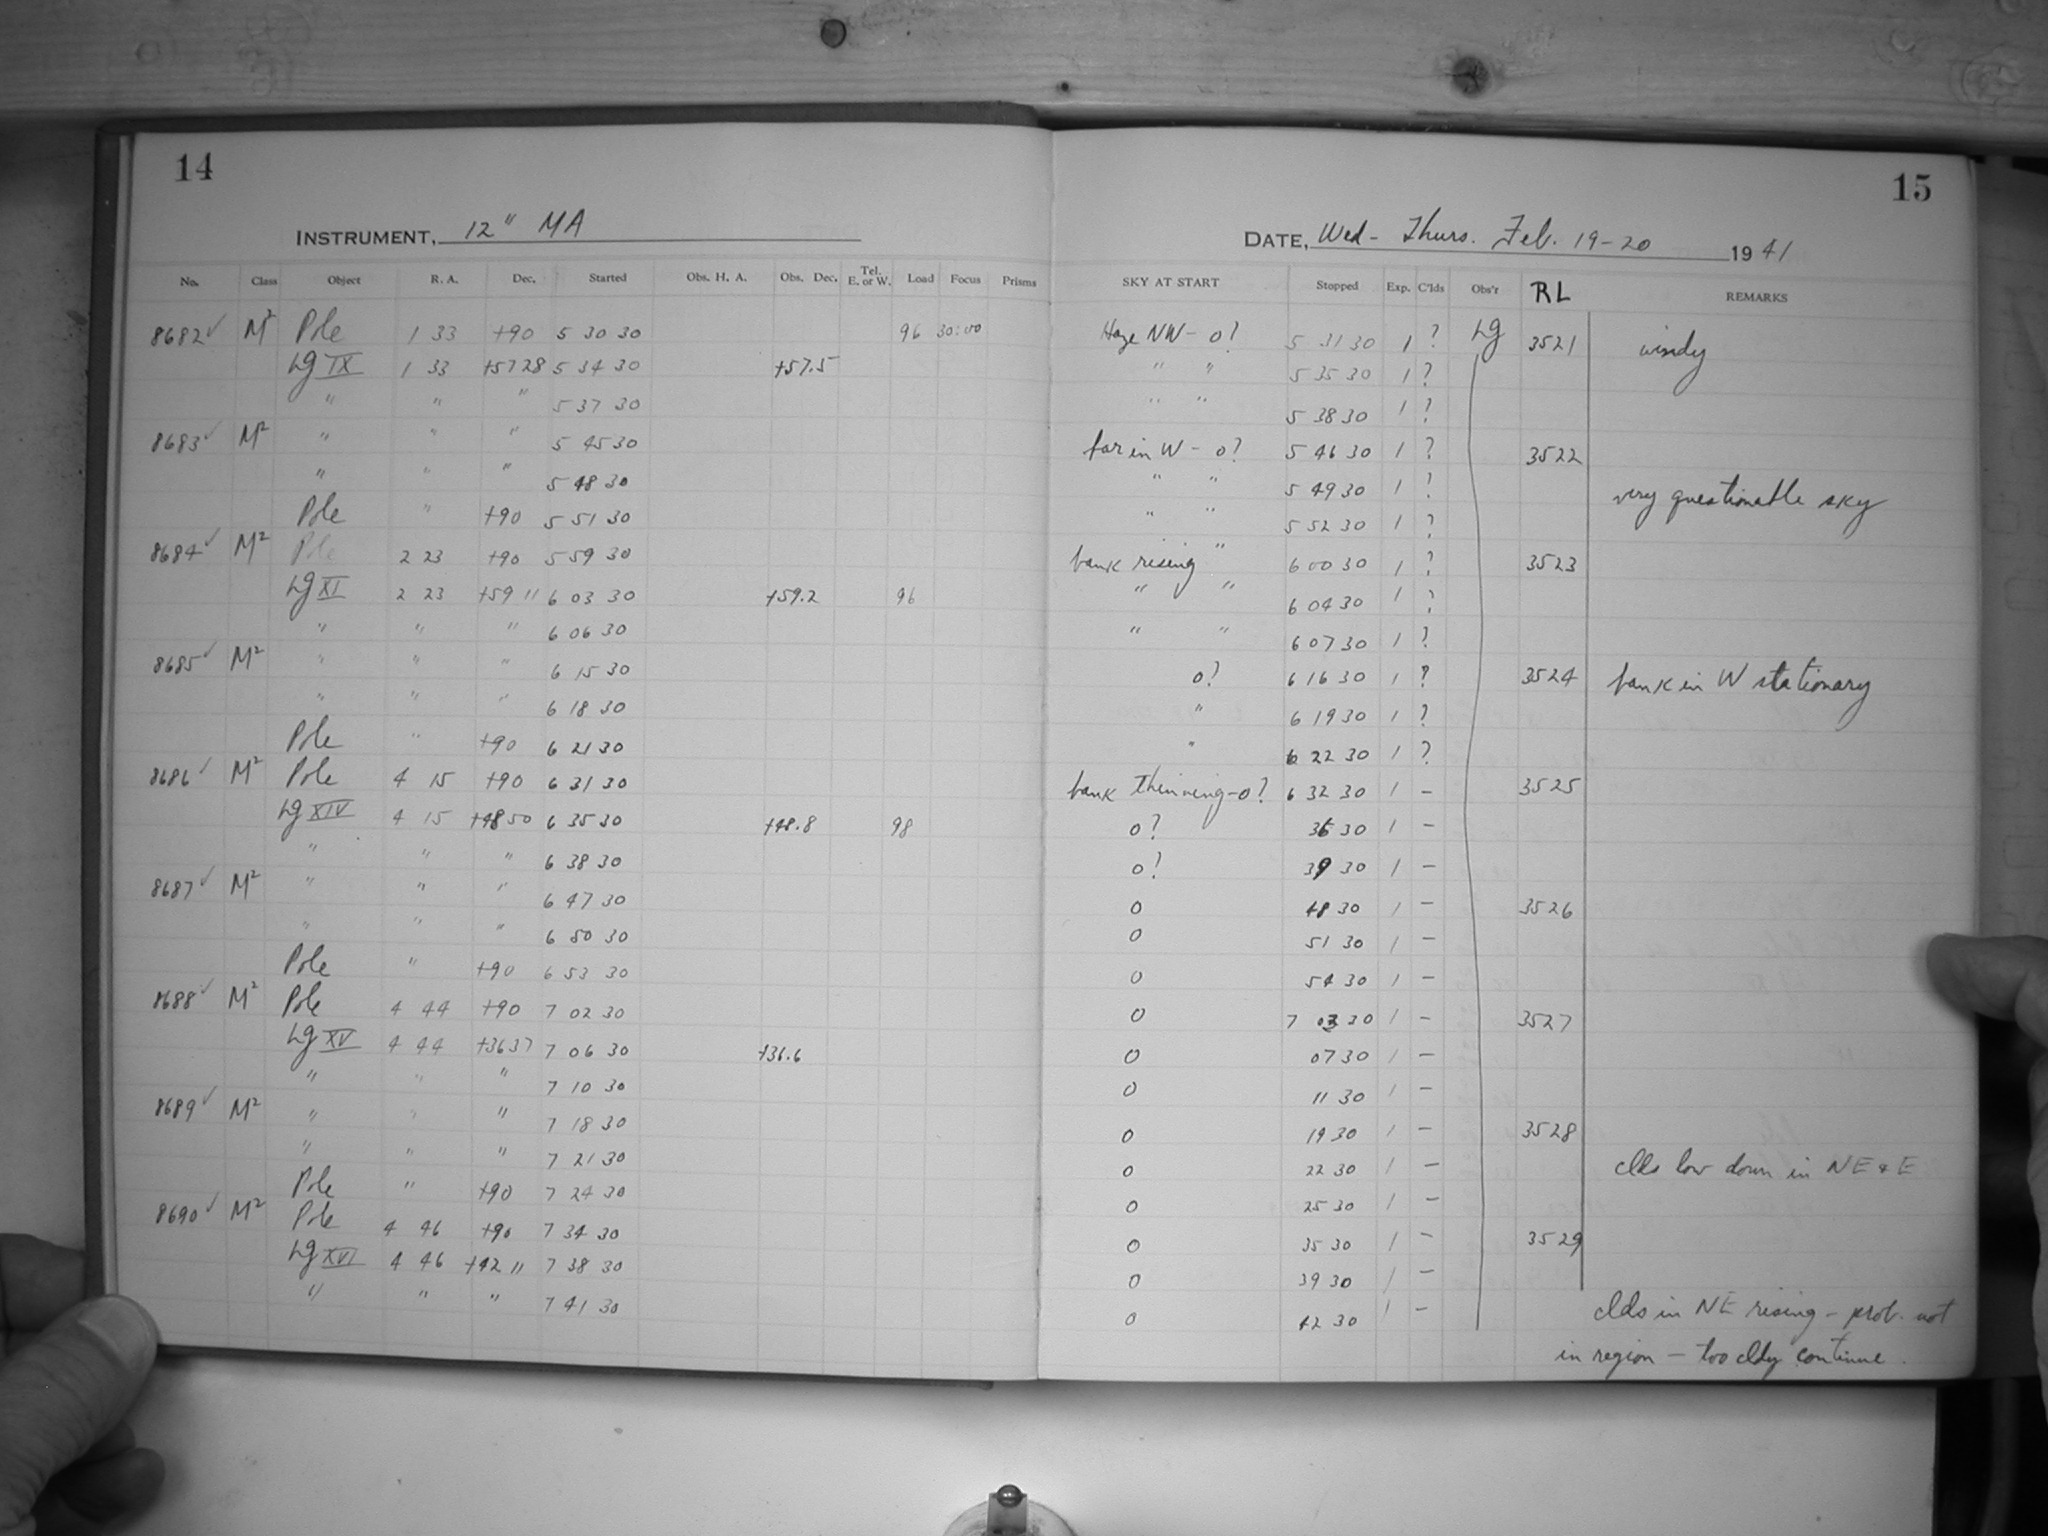 14
15
INSTRUMENT, 12" MA
DATE, Wed - Thurs. Feb. 19-20 1941
No. Class Object R. A. Dec. Started Obs. H. A. Obs. Dec. Tel. E. or W. Load Focus Prisms SKY AT START Stopped Exp. C'lds Obs'r RL REMARKS
8682 ✓ M² Pole 1 33 +90 5 30 30 96 30:00 Haze NW - 0? 5 31 30 1 ? Hg 3521 windy
Hg IX 1 33 +57 28 5 34 30 +57.5 " " 5 35 30 1 ?
" " " 5 37 30 " " 5 38 30 1 ?
8683 ✓ M² " " " 5 45 30 far in W - 0? 5 46 30 1 ? 3522
" " " 5 48 30 " " 5 49 30 1 ? very questionable sky
Pole " +90 5 51 30 " " 5 52 30 1 ?
8684 ✓ M² Pole 2 23 +90 5 59 30 bank rising " 6 00 30 1 ? 3523
Hg XI 2 23 +59 11 6 03 30 +59.2 96 " " 6 04 30 1 ?
" " " 6 06 30 " " 6 07 30 1 ?
8685 ✓ M² " " " 6 15 30 0? 6 16 30 1 ? 3524 bank in W stationary
" " " 6 18 30 " 6 19 30 1 ?
Pole " +90 6 21 30 " 6 22 30 1 ?
8686 ✓ M² Pole 4 15 +90 6 31 30 bank thinning - 0? 6 32 30 1 - 3525
Hg XIV 4 15 +48 50 6 35 30 +48.8 98 0? 36 30 1 -
" " " 6 38 30 0? 39 30 1 -
8687 ✓ M² " " " 6 47 30 0 48 30 1 - 3526
" " " 6 50 30 0 51 30 1 -
Pole " +90 6 53 30 0 54 30 1 -
8688 ✓ M² Pole 4 44 +90 7 02 30 0 7 03 30 1 - 3527
Hg XV 4 44 +36 37 7 06 30 +36.6 0 07 30 1 -
" " " 7 10 30 0 11 30 1 -
8689 ✓ M² " " " 7 18 30 0 19 30 1 - 3528
" " " 7 21 30 0 22 30 1 - clds low down in NE & E
Pole " +90 7 24 30 0 25 30 1 -
8690 ✓ M² Pole 4 46 +90 7 34 30 0 35 30 1 - 3529
Hg XVI 4 46 +42 11 7 38 30 0 39 30 1 -
" " " 7 41 30 0 42 30 1 - clds in NE rising - prob. not
in region - too cldy continue.